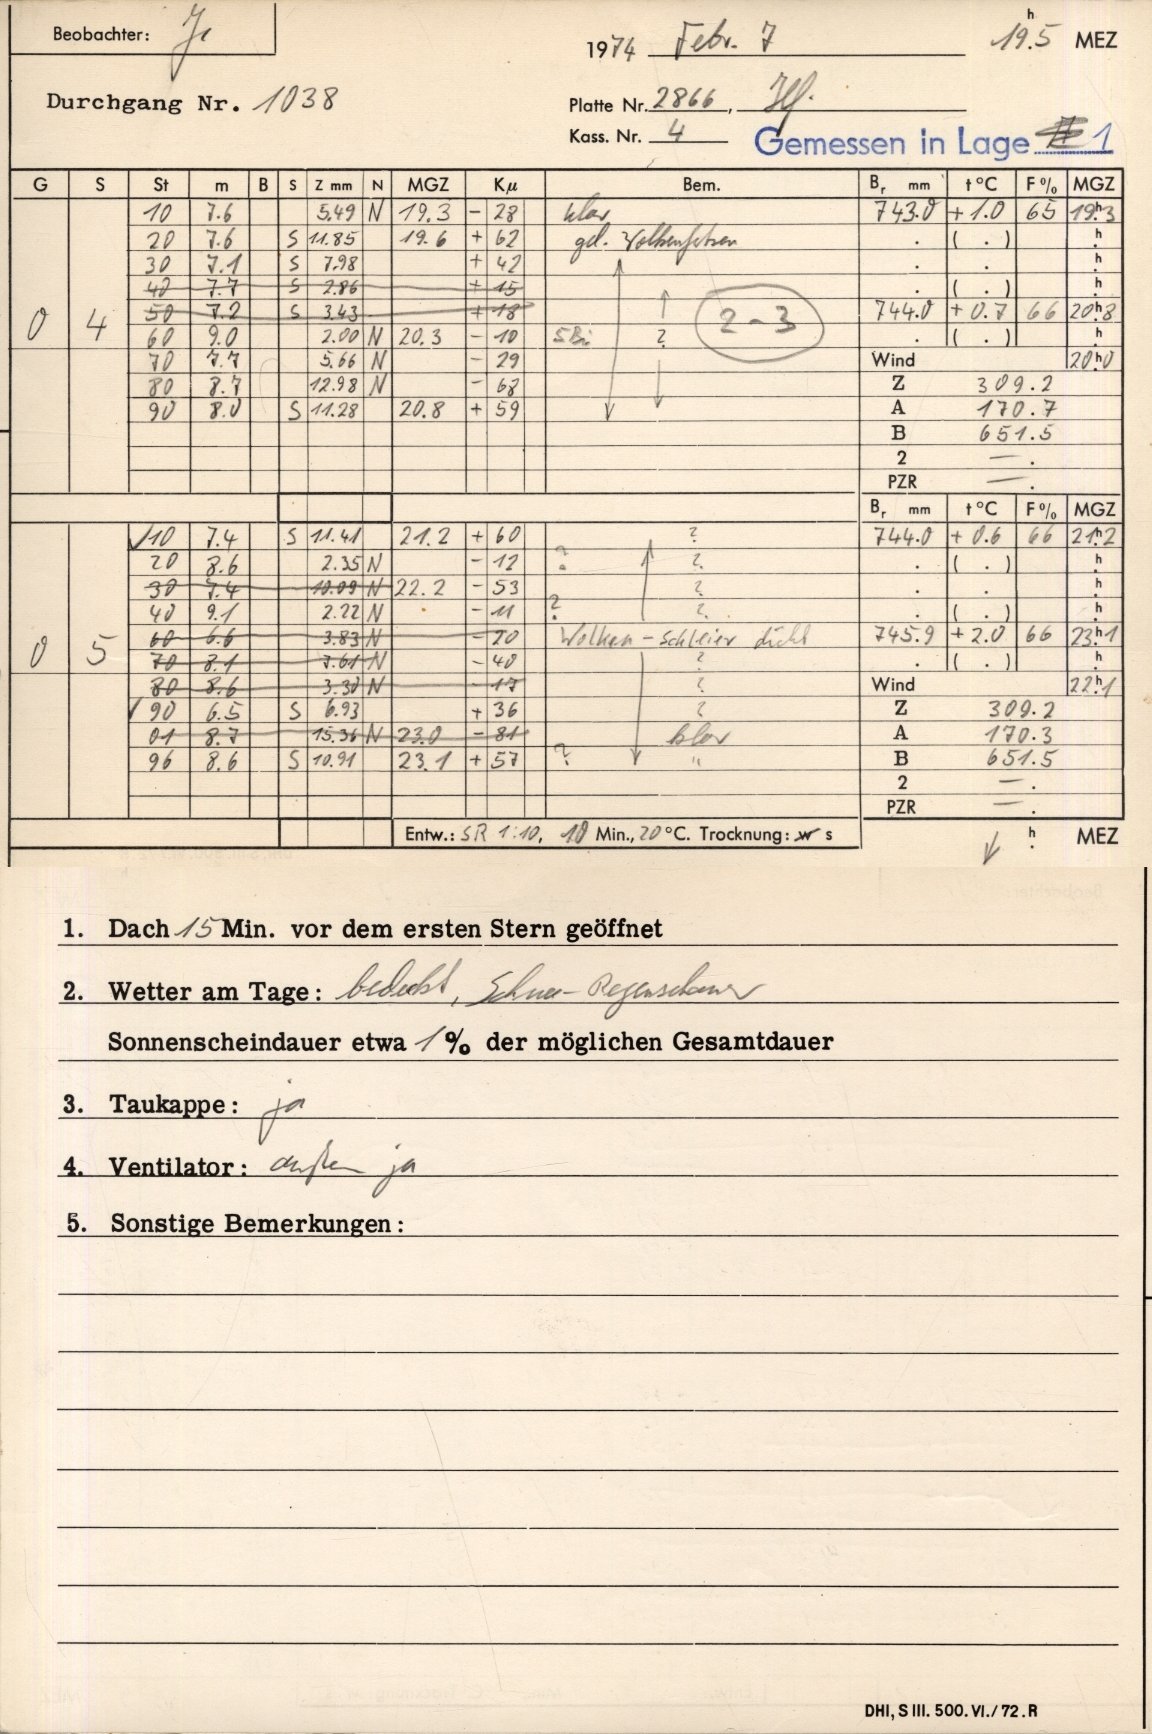 Beobachter: Je
1974 Febr. 7 19.5 h MEZ
Durchgang Nr. 1038
Platte Nr. 2866,
Kass. Nr. 4 Gemessen in Lage 1
G S St m B S Z mm N MGZ Kμ Bem. Br mm t °C F % MGZ
10 7.6 5.49 N 19.3 - 28 klar 743.0 + 1.0 65 19h.3
20 7.6 S 11.85 19.6 + 62 gel. Wolkenfetzen . ( . ) h.
30 7.1 S 7.98 + 42 . . h.
40 7.7 S 2.86 + 15 . ( . ) h.
0 4 50 7.2 S 3.43 + 18 2-3 744.0 + 0.7 66 20h.8
60 9.0 2.00 N 20.3 - 10 5Bi ? . ( . ) h.
70 7.7 5.66 N - 29 Wind 20h.0
80 8.7 12.98 N - 68 Z 309.2
90 8.0 S 11.28 20.8 + 59 A 170.7
B 651.5
2 — .
PZR — .
Br mm t °C F % MGZ
✓10 7.4 S 11.41 21.2 + 60 ? 744.0 + 0.6 66 21h.2
20 8.6 2.35 N - 12 ? ? . ( . ) h.
30 7.4 10.09 N 22.2 - 53 ? . . h.
40 9.1 2.22 N - 11 ? ? . ( . ) h.
0 5 60 6.6 3.83 N - 20 Wolken-Schleier dicht 745.9 + 2.0 66 23h.1
70 8.1 7.61 N - 40 ? . ( . ) h.
80 8.6 3.30 N - 17 ? Wind 22h.1
✓90 6.5 S 6.93 + 36 ? Z 309.2
01 8.7 15.36 N 23.0 - 81 klar A 170.3
96 8.6 S 10.91 23.1 + 57 ? " B 651.5
2 — .
PZR — .
Entw.: SR 1:10, 10 Min., 20 °C. Trocknung: w s h. MEZ
1. Dach 15 Min. vor dem ersten Stern geöffnet
2. Wetter am Tage: bedeckt, Schnee-Regenschauer
Sonnenscheindauer etwa 1 % der möglichen Gesamtdauer
3. Taukappe: ja
4. Ventilator: außen ja
5. Sonstige Bemerkungen:
DHI, S III. 500. VI./72. R